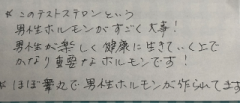 * このテストステロンという
男性ホルモンがすごく大事!
男性が楽しく健康に生きていく上で
かなり重要なホルモンです!
* ほぼ睾丸で男性ホルモンが作られてます